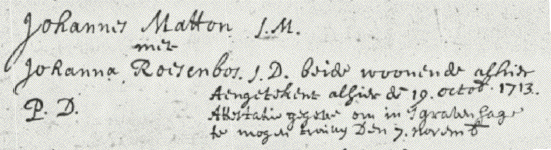 Johannes Matton J.M.
met
Johanna Roesenbos. J.D. beide woonende alhier
Aengetekent alhier de 19. octob. 1713.
P. D. Attestatie gegeve om in S gravenhage
te mogen trouwen Den 7. novemb